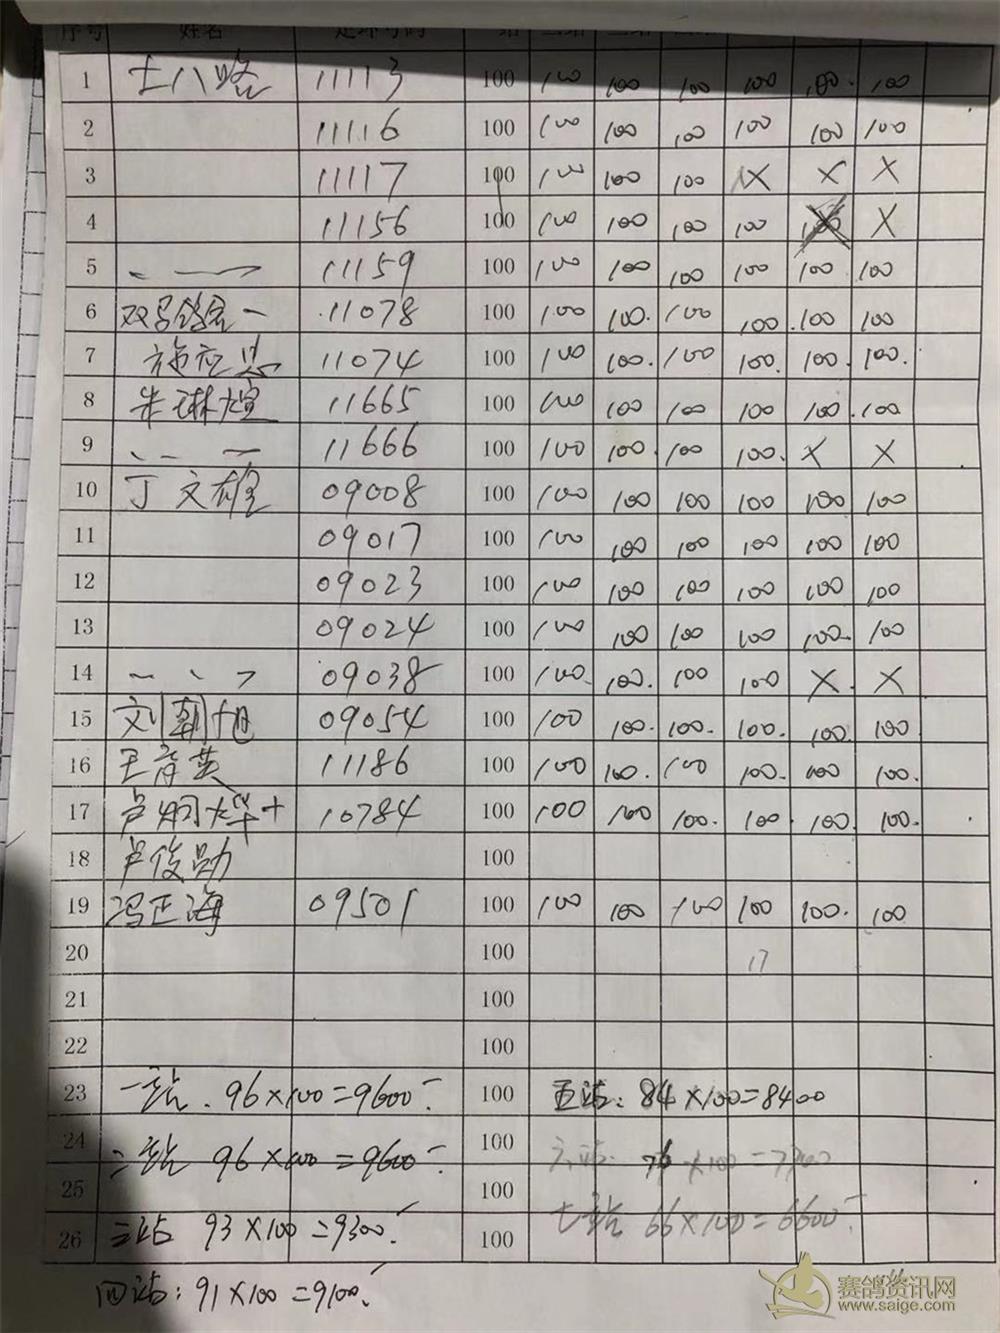 序号 姓名 足环号码 一站 二站 三站
1 土八路 11113 100 100 100 100 100 100 100
2 11116 100 100 100 100 100 100 100
3 11117 100 100 100 100 X X X
4 11156 100 100 100 100 100 X
5 11159 100 100 100 100 100 100 100
6 11078 100 100 100. 100 100. 100 100
7 11074 100 100 100. 100 100. 100. 100.
8 朱琳煊 11665 100 100 100 100 100 100. 100
9 11666 100 100 100. 100 100. X X
10 丁文雄 09008 100 100 100 100 100 100 100
11 09017 100 100 100 100 100 100 100
12 09023 100 100 100 100 100 100 100
13 09024 100 100 100 100 100 100. 100
14 09038 100 100. 100. 100 100 X. X
15 刘朝旭 09054 100 100 100. 100. 100. 100. 100
16 王彦英 11186 100 100 100. 100 100. 100 100.
17 卢炯烨+ 10784 100 100 100 100. 100 100. 100.
18 卢俊勋 100
19 冯正海 09501 100 100 100 100 100 100. 100
20 100 17
21 100
22 100
23 一站. 96×100=9600 100 五站: 84×100=8400
24 二站 96×100=9600 100 六站. ×100=
25 100
26 三站 93×100=9300 100 七站 66×100=6600
四站: 91×100=9100.
赛鸽资讯网
www.saige.com